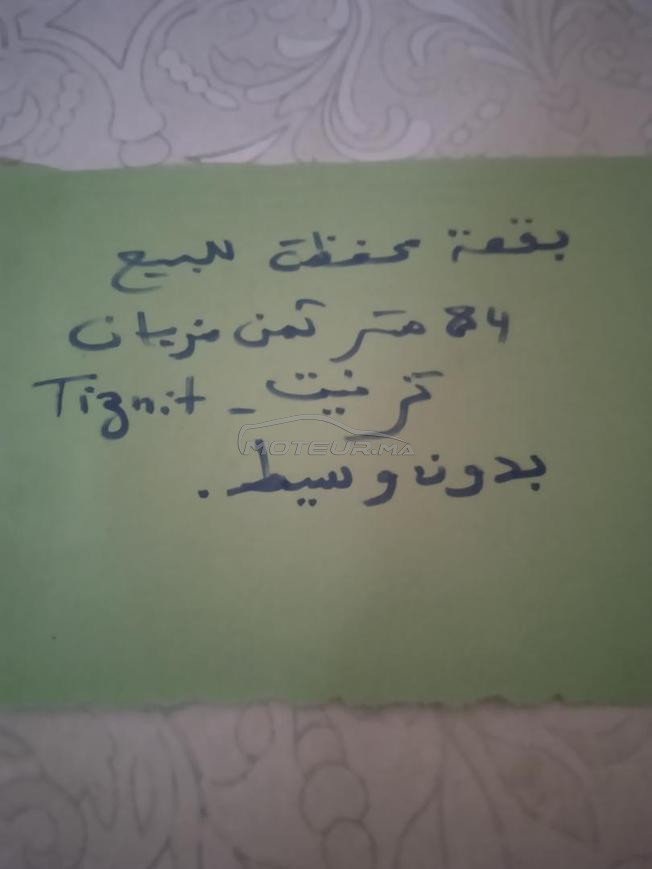 بقعة محفظة للبيع
84 متر تمن مزيان
تزنيت - Tiznit
MOTEUR.MA
بدون وسيط.